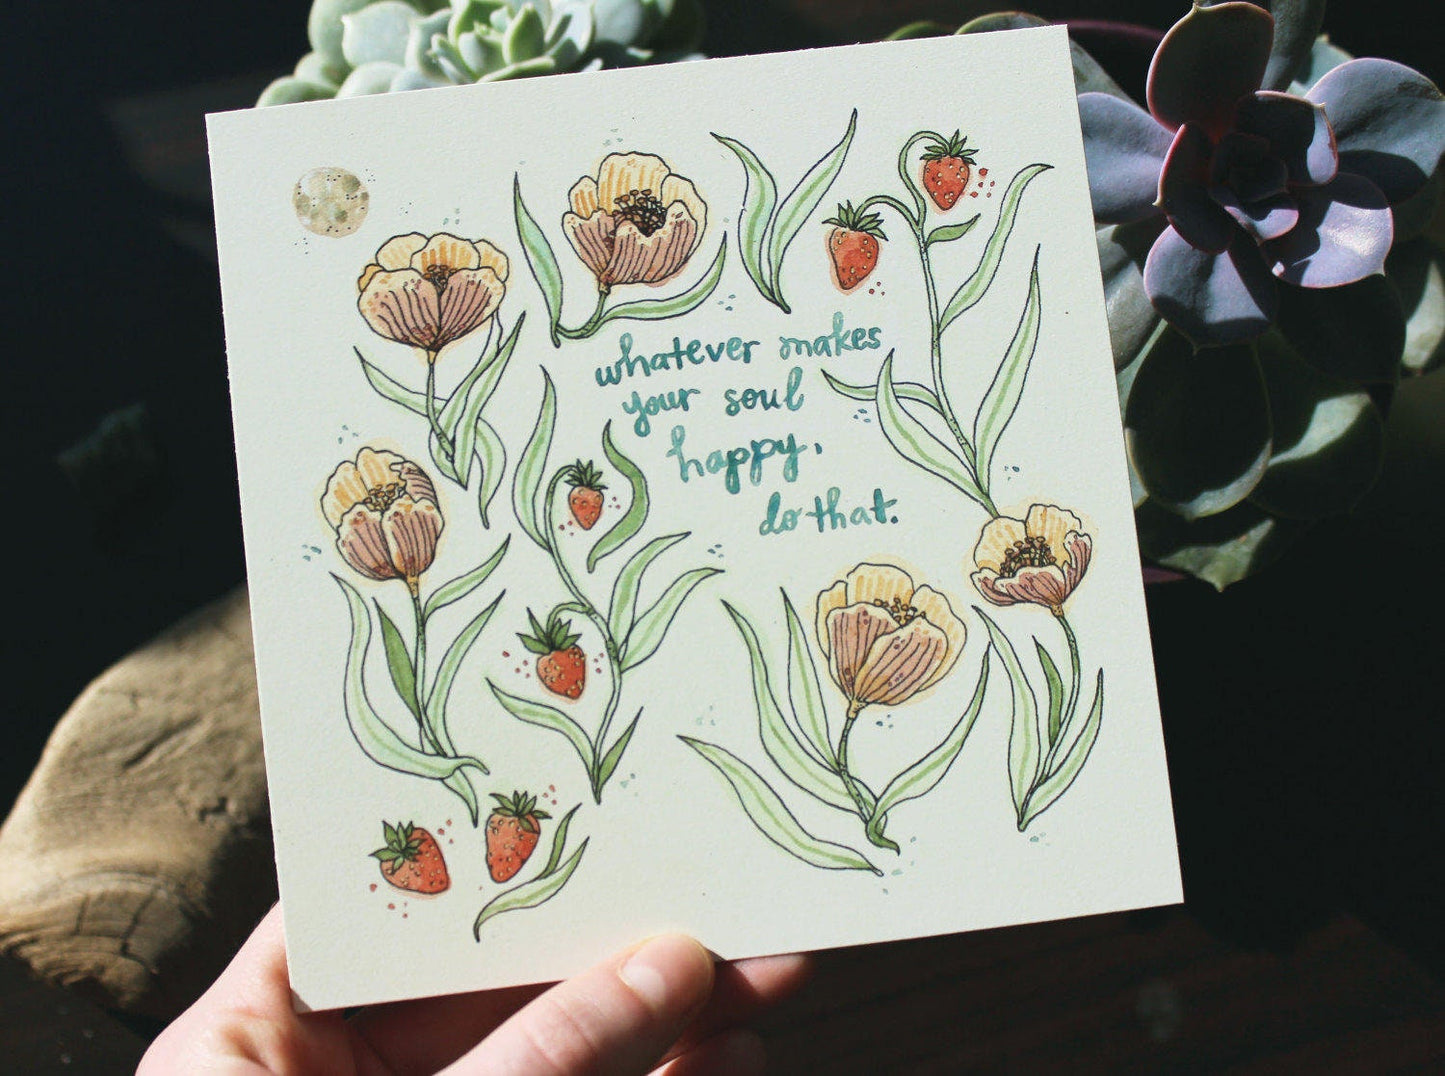 whatever makes
your soul
happy,
do that.